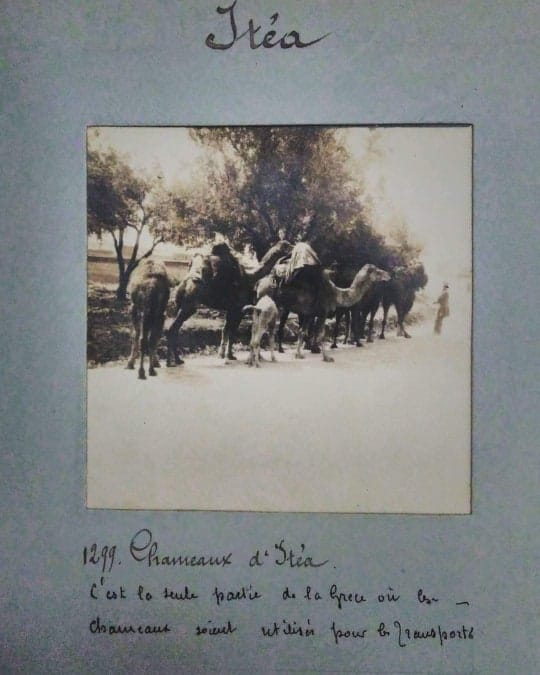 Itéa
1299. Chameaux d'Itéa.
C'est la seule partie de la Grèce où les –
chameaux soient utilisés pour les Transports